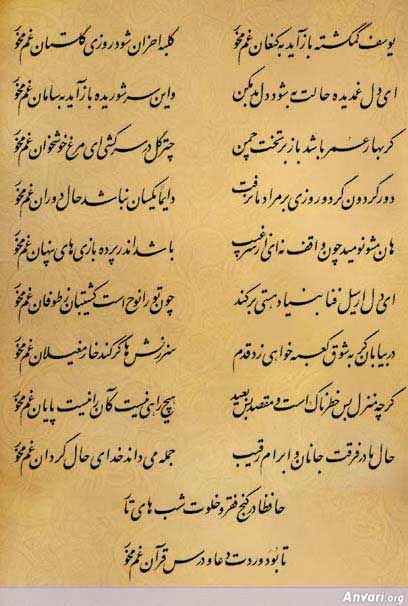 یوسف گمگشته باز آید به کنعان غم مخور کلبه احزان شود روزی گلستان غم مخور
ای دل غمدیده حالت به شود دل بد مکن واین سر شوریده باز آید به سامان غم مخور
گر بهار عمر باشد باز بر تخت چمن چتر گل در سر کشی ای مرغ خوشخوان غم مخور
دور گردون گر دو روزی بر مراد ما نرفت دایما یکسان نباشد حال دوران غم مخور
هان مشو نومید چون واقف نه‌ای از سر غیب باشد اندر پرده بازی‌های پنهان غم مخور
ای دل ار سیل فنا بنیاد هستی برکند چون تو را نوح است کشتیبان ز طوفان غم مخور
در بیابان گر به شوق کعبه خواهی زد قدم سرزنش‌ها گر کند خار مغیلان غم مخور
گرچه منزل بس خطرناک است و مقصد بس بعید هیچ راهی نیست کان را نیست پایان غم مخور
حال ما در فرقت جانان و ابرام رقیب جمله می‌داند خدای حال گردان غم مخور
حافظا در کنج فقر و خلوت شب‌های تار
تا بود وردت دعا و درس قرآن غم مخور
Anvari.org